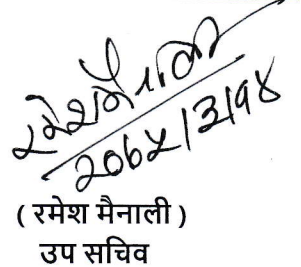 रमेश मैनाली
२०७५/३/१४
( रमेश मैनाली )
उप सचिव